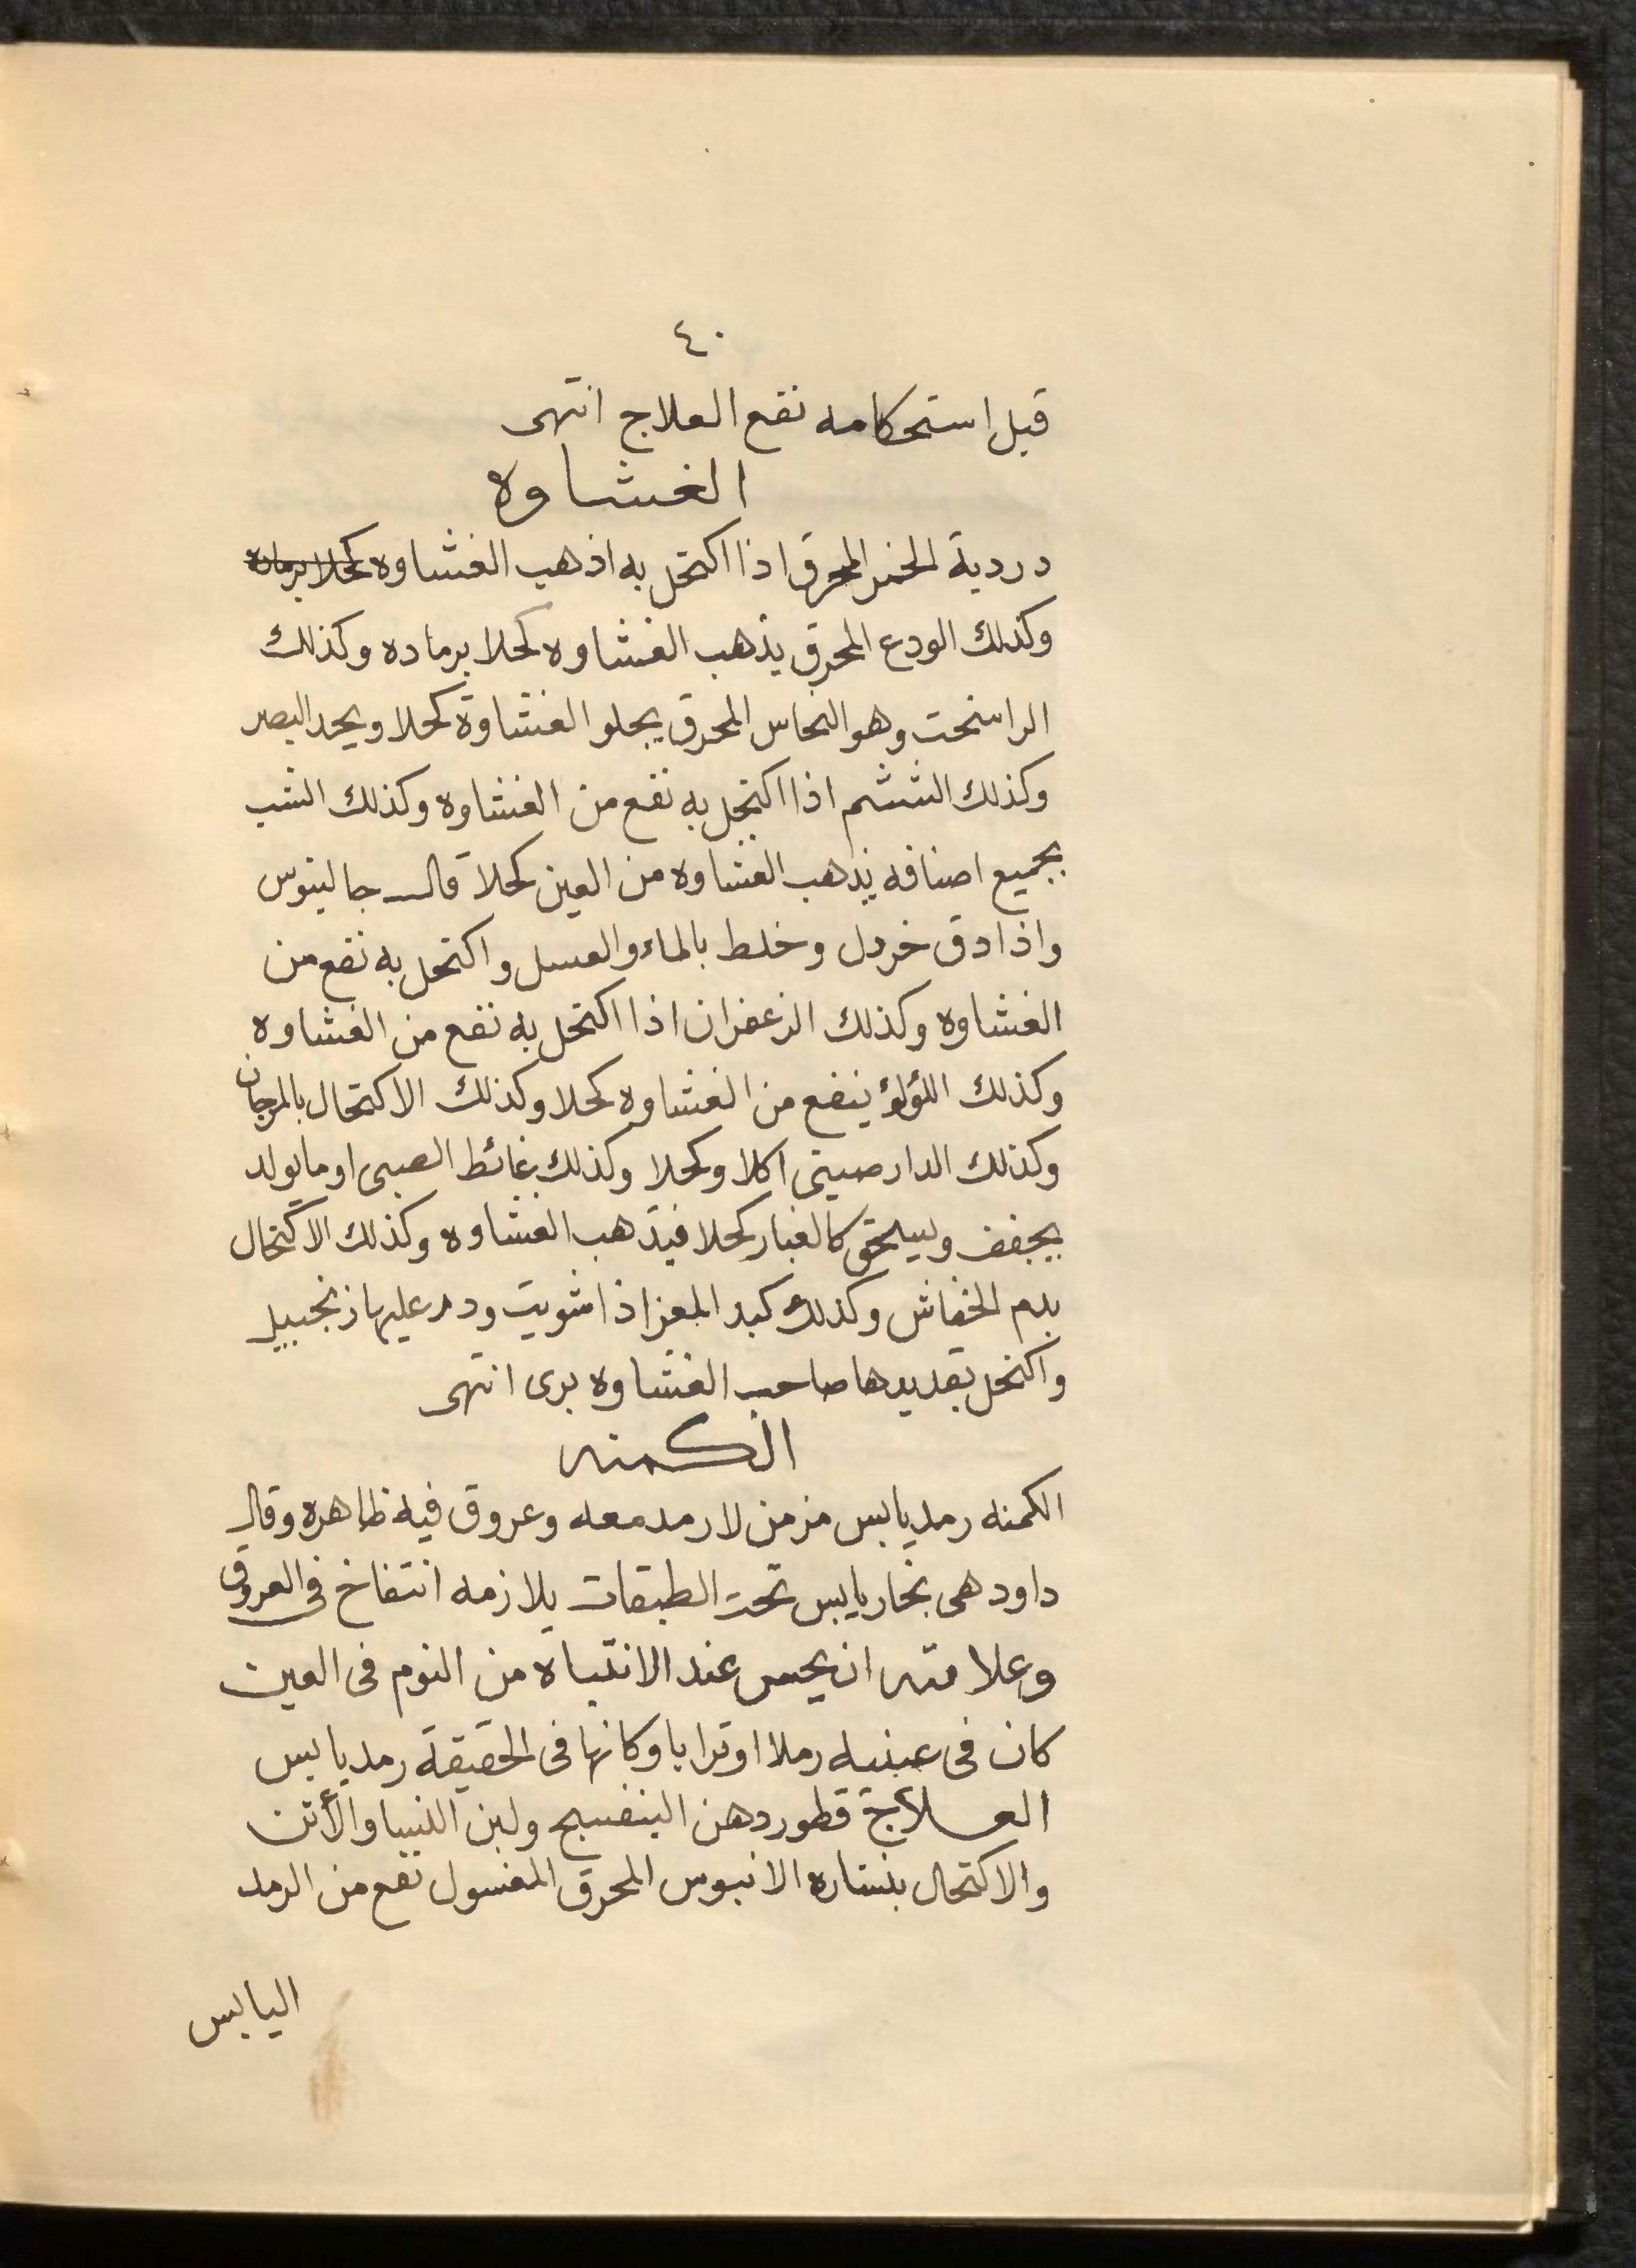 ٤٠
قبل استحكامه نفع العلاج انتهى
الغشاوه
دردية الخمر المحرق اذا اكتحل به اذهب الغشاوه كحلا برماده
وكذلك الودع المحرق يذهب الغشاوه كحلا برماده وكذلك
الراسخت وهو النحاس المحرق يجلوا الغشاوة كحلا ويحد البصر
وكذلك الششم اذا اكتحل به نفع من الغشاوه وكذلك الشب
بجميع اصنافه يذهب الغشاوه من العين كحلا قال جالينوس
واذا دق خردل وخلط بالماء والعسل واكتحل به نفع من
الغشاوه وكذلك الزعفران اذا اكتحل به نفع من الغشاوه
وكذلك اللؤلؤ ينفع من الغشاوه كحلا وكذلك الاكتحال بالمرجان
وكذلك الدارصيني اكلا وكحلا وكذلك غائط الصبى او ما يولد
يجفف ويسحق كالغبار كحلا فيذهب الغشاوه وكذلك الاكتحال
بدم الخفاش وكذلك كبد المعز اذا شويت وذر عليها زنجبيل
واكتحل بقديدها صاحب الغشاوه برى انتهى
الكمنه
الكمنه رمد يابس مزمن لا رمد معه وعروق فيه ظاهره وقال
داود هى بخار يابس تحت الطبقات يلازمه انتفاخ فى العروق
وعلامته ان يحس عند الانتباه من النوم فى العين
كان فى عينيه رملا او ترابا وكانها فى الحقيقة رمد يابس
العلاج قطور دهن البنفسج ولبن النسا والأتن
والاكتحال بنشاره الانبوس المحرق المغسول نفع من الرمد
اليابس